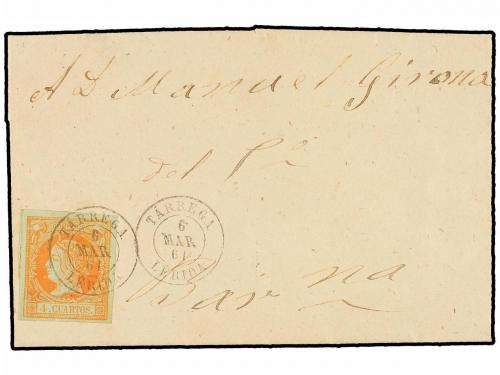 A D Manuel Girona
del C.º
Bar na
TÁRREGA
6
MAR
61
LÉRIDA
TÁRREGA
6
MAR
61
LÉRIDA
4 CUARTOS.